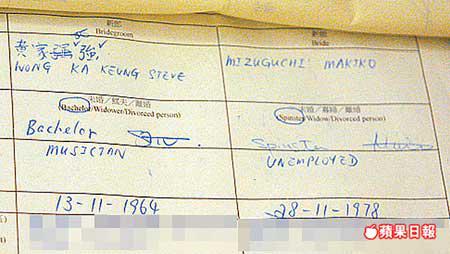 新郎
Bridegroom
新娘
Bride
黃家強
WONG KA KEUNG STEVE
MIZUGUCHI MAKIKO
未婚／鰥夫／離婚
(Bachelor/Widower/Divorced person)
未婚／寡婦／離婚
(Spinster/Widow/Divorced person)
Bachelor
Spinster
MUSICIAN
UNEMPLOYED
13-11-1964
28-11-1978
蘋果日報